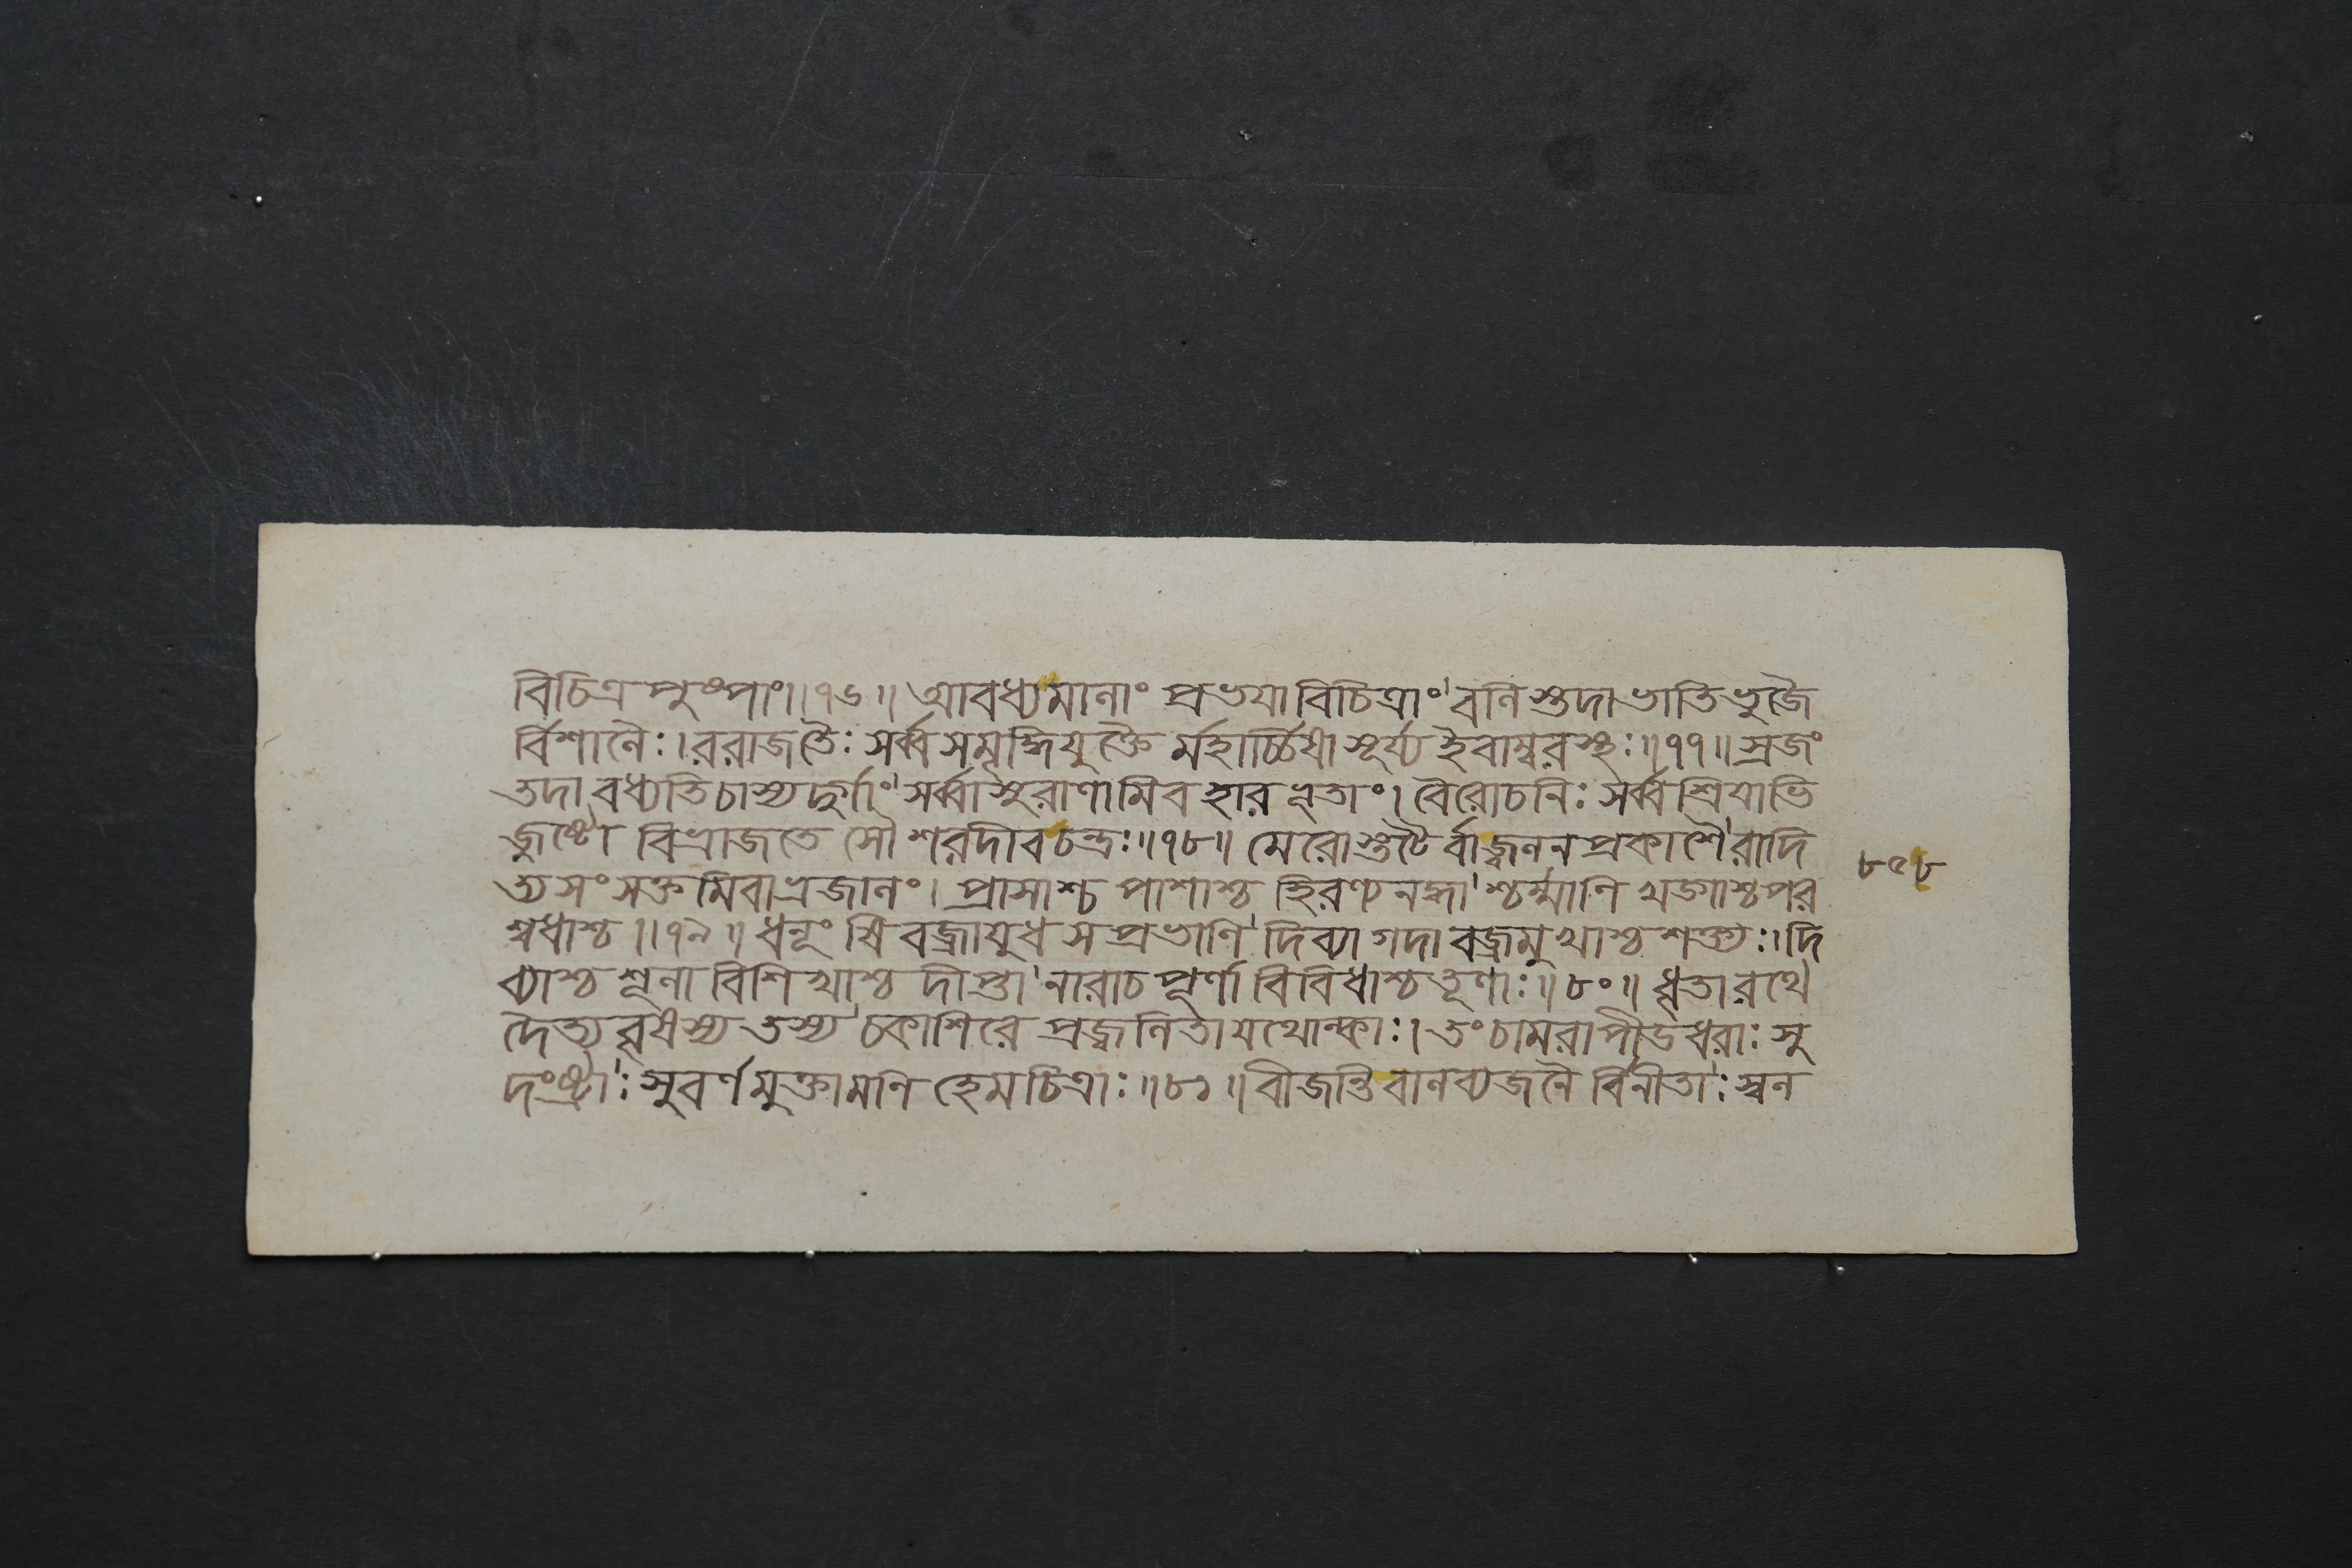 বিচিত্রপুষ্পাং॥৭৬॥ আবধ্যমানাং প্রভযাবিচিত্রাং বলিস্তদাভাতিভুজৈ
র্বিশালৈঃ।ররাজতৈঃ সর্ব্বসমৃদ্ধিযুক্তৈ র্মহার্চ্চিষা সূর্য্য ইবাম্বরস্থঃ॥৭৭॥ স্রজং
তদা বধ্যতিচাস্য সর্ব্বাসুরাণামিব হার ভূতাং। বৈরোচনিঃ সর্ব্বশ্রিযাভি
জুষ্টো বিভ্রাজতে সৌ শরদীবচন্দ্রঃ॥৭৮॥ মেরোস্তটৈ র্বাজ্বলনপ্রকাশৈ রাদি
ত্যসংসক্তমিবাভ্রজালং। প্রাসাশ্চ পাশাশ্চ হিরণ্যনদ্ধা শ্চর্ম্মাণি খড়্গাশ্চপর
শ্বধাশ্চ॥৭৯॥ ধনূংষি বজ্রাযুধ সপ্রভাণি দিব্যা গদা বজ্রমুখাশ্চ শক্ত্যঃ।দি
ব্যাশ্চ শূলা বিশিখাশ্চ দীপ্তা নারাচপূর্ণা বিবিধাশ্চ তূণাঃ॥৮০॥ ধৃতা রথে
দৈত্যবৃষস্য তস্য চকাশিরে প্রজ্বলিতা যথোল্কাঃ। তং চামরাপীডধরাঃ সু
দংষ্ট্রাঃ সুবর্ণমুক্তামণি হেমচিত্রাঃ॥৮১॥ বীজন্তি বালব্যজনৈ র্বিনীতাঃ স্বল
৮৫৮